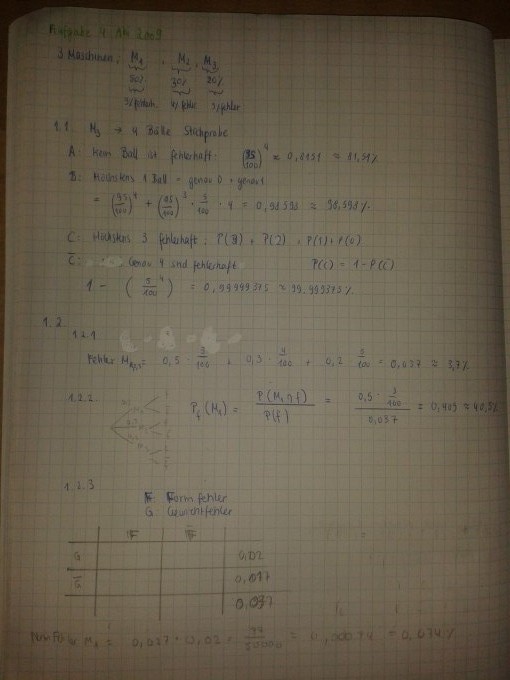 Aufgabe 4 2009
3 Maschinen: M1, M2, M3
50% 30% 20%
3% fehlerh. 4% fehler 5% fehler
1.1. M3 → 4 Bälle Stichprobe
A: Kein Ball ist fehlerhaft: (95/100)^4 ≈ 0,8151 ≈ 81,51%
B: Höchstens 1 Ball = genau 0 + genau 1
= (95/100)^4 + (95/100)^3 · 5/100 · 4 = 0,98598 ≈ 98,598%
C: Höchstens 3 fehlerhaft: P(3) + P(2) + P(1) + P(0)
C̅: Genau 4 sind fehlerhaft P(C) = 1 - P(C̅)
1 - (5/100^4) = 0,99999375 ≈ 99,999375%
1.2.
1.2.1
Fehler M1,2,3 = 0,5 · 3/100 + 0,3 · 4/100 + 0,2 · 5/100 = 0,037 ≈ 3,7%
1.2.2. Pf(M1) = P(M1∩f)/P(f) = 0,5 · 3/100 / 0,037 = 0,405 ≈ 40,5%
1.2.3
F: Formfehler
G: Gewichtfehler
F F̅
G 0,02
G̅ 0,017
0,037
0,037 · 0,02 = 0,00074 = 0,074%